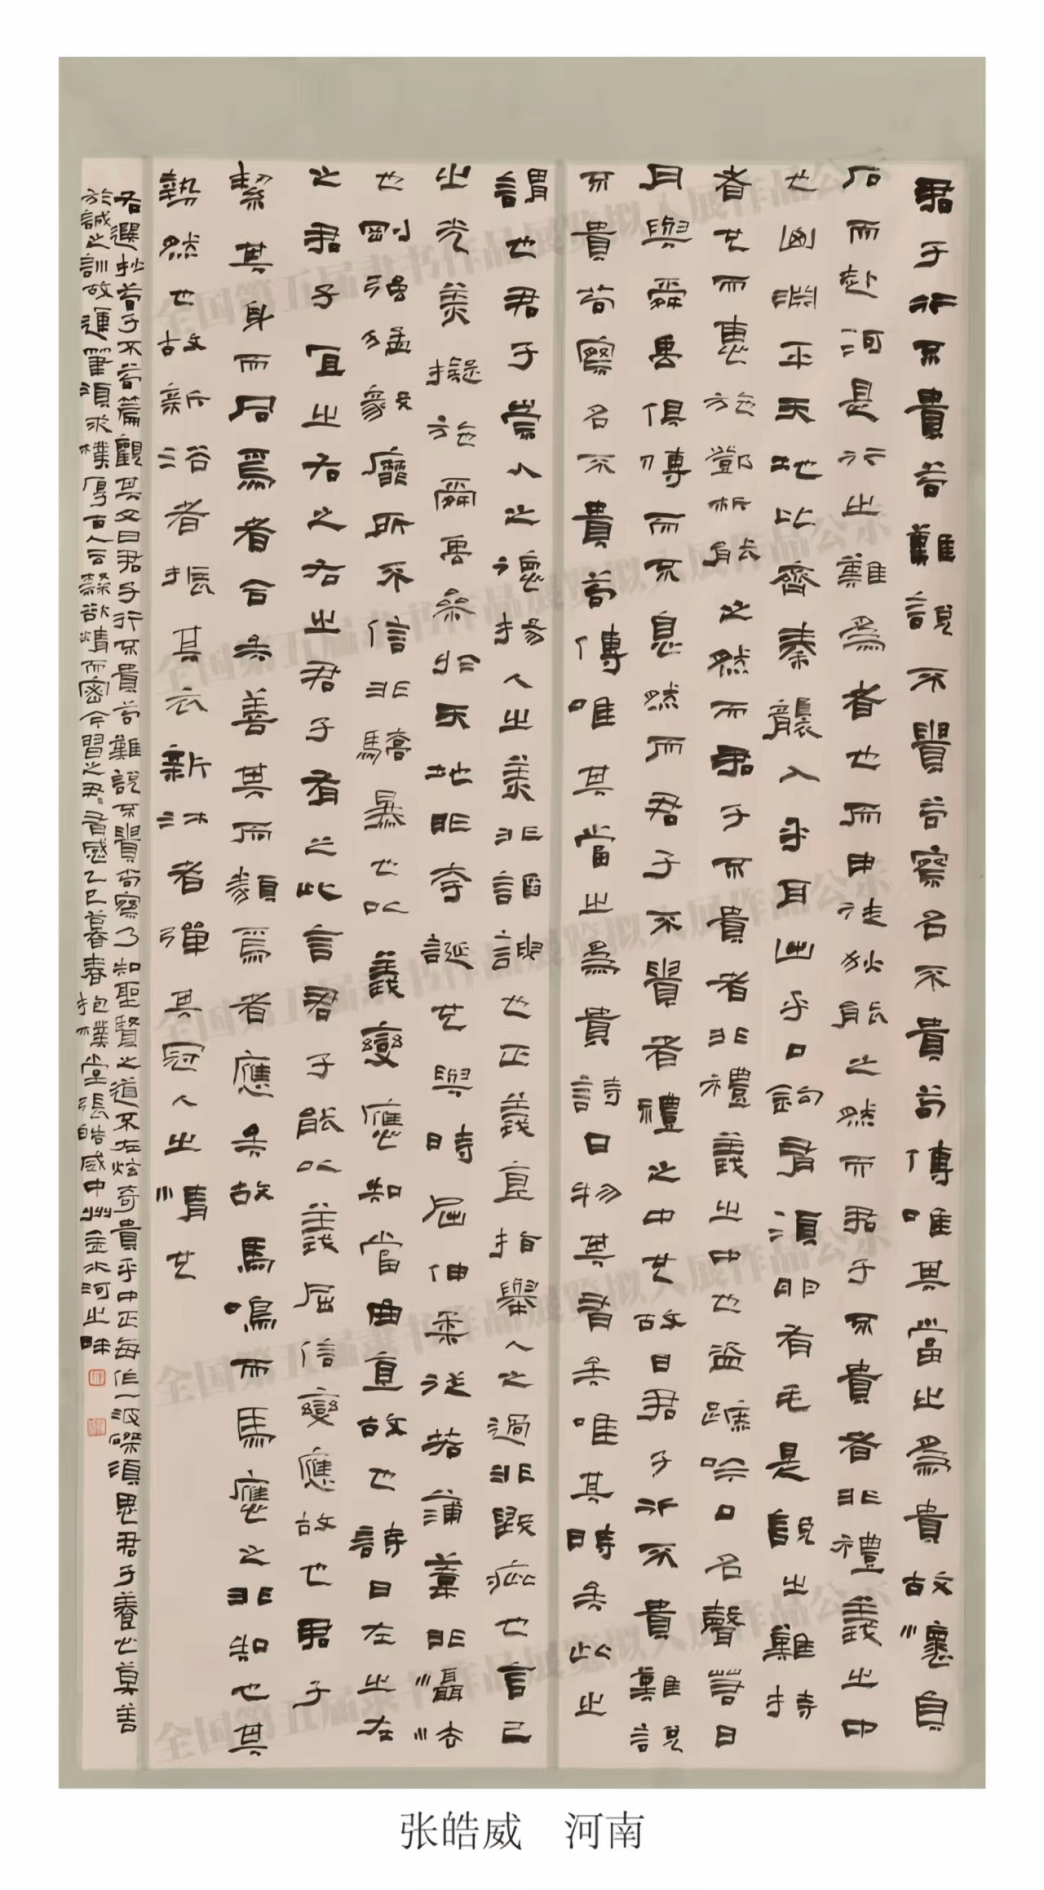 君子行不貴苟難說不貴苟察名不貴苟傳唯其當之為貴故懷負
石而赴河是行之難為者也而申徒狄能之然而君子不貴者非禮義之中
也山淵平天地比齊秦襲入乎耳出乎口鉤有須卵有毛是說之難持
者也而惠施鄧析能之然而君子不貴者非禮義之中也盜跖吟口名聲若日
月與舜禹俱傳而不息然而君子不貴者禮之中也故曰君子行不貴難說
不貴苟察名不貴苟傳唯其當之為貴詩曰物其有矣唯其時矣此之
謂也君子崇人之德揚人之美非諂諛也正義直指舉人之過非毀疵也言己
之光美擬於舜禹參於天地非夸誕也與時屈伸柔從若蒲葦非懾怯
也剛強猛毅靡所不信非驕暴也以義變應知當曲直故也詩曰左之左
之君子宜之右之右之君子有之此言君子能以義屈信變應故也君子
絜其身而同焉者合矣善其而類焉者應矣故馬鳴而馬應之非知也其
勢然也故新浴者振其衣新沐者彈其冠人之情也
右選抄荀子不苟篇觀其文曰君子行不貴苟難說不貴苟察乃知聖賢之道不在炫奇貴乎中正每作一波磔須思君子養心莫善
於誠之訓故運筆須求樸厚古人云隸欲精而密今習之尤有感乙巳暮春抱樸堂張皓威中州金水河之畔
全国第五届隶书作品展览拟入展作品公示
全国第五届隶书作品展览拟入展作品公示
全国第五届隶书作品展览拟入展作品公示
全国第五届隶书作品展览拟入展作品公示
全国第五届隶书作品展览拟入展作品公示
张皓威 河南